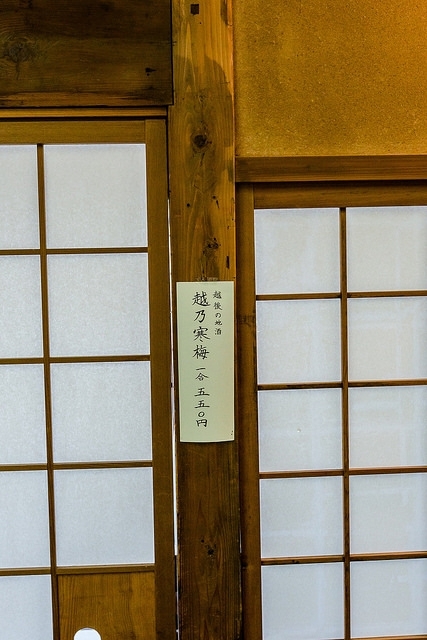 越後の地酒
越乃寒梅 一合 五五〇円